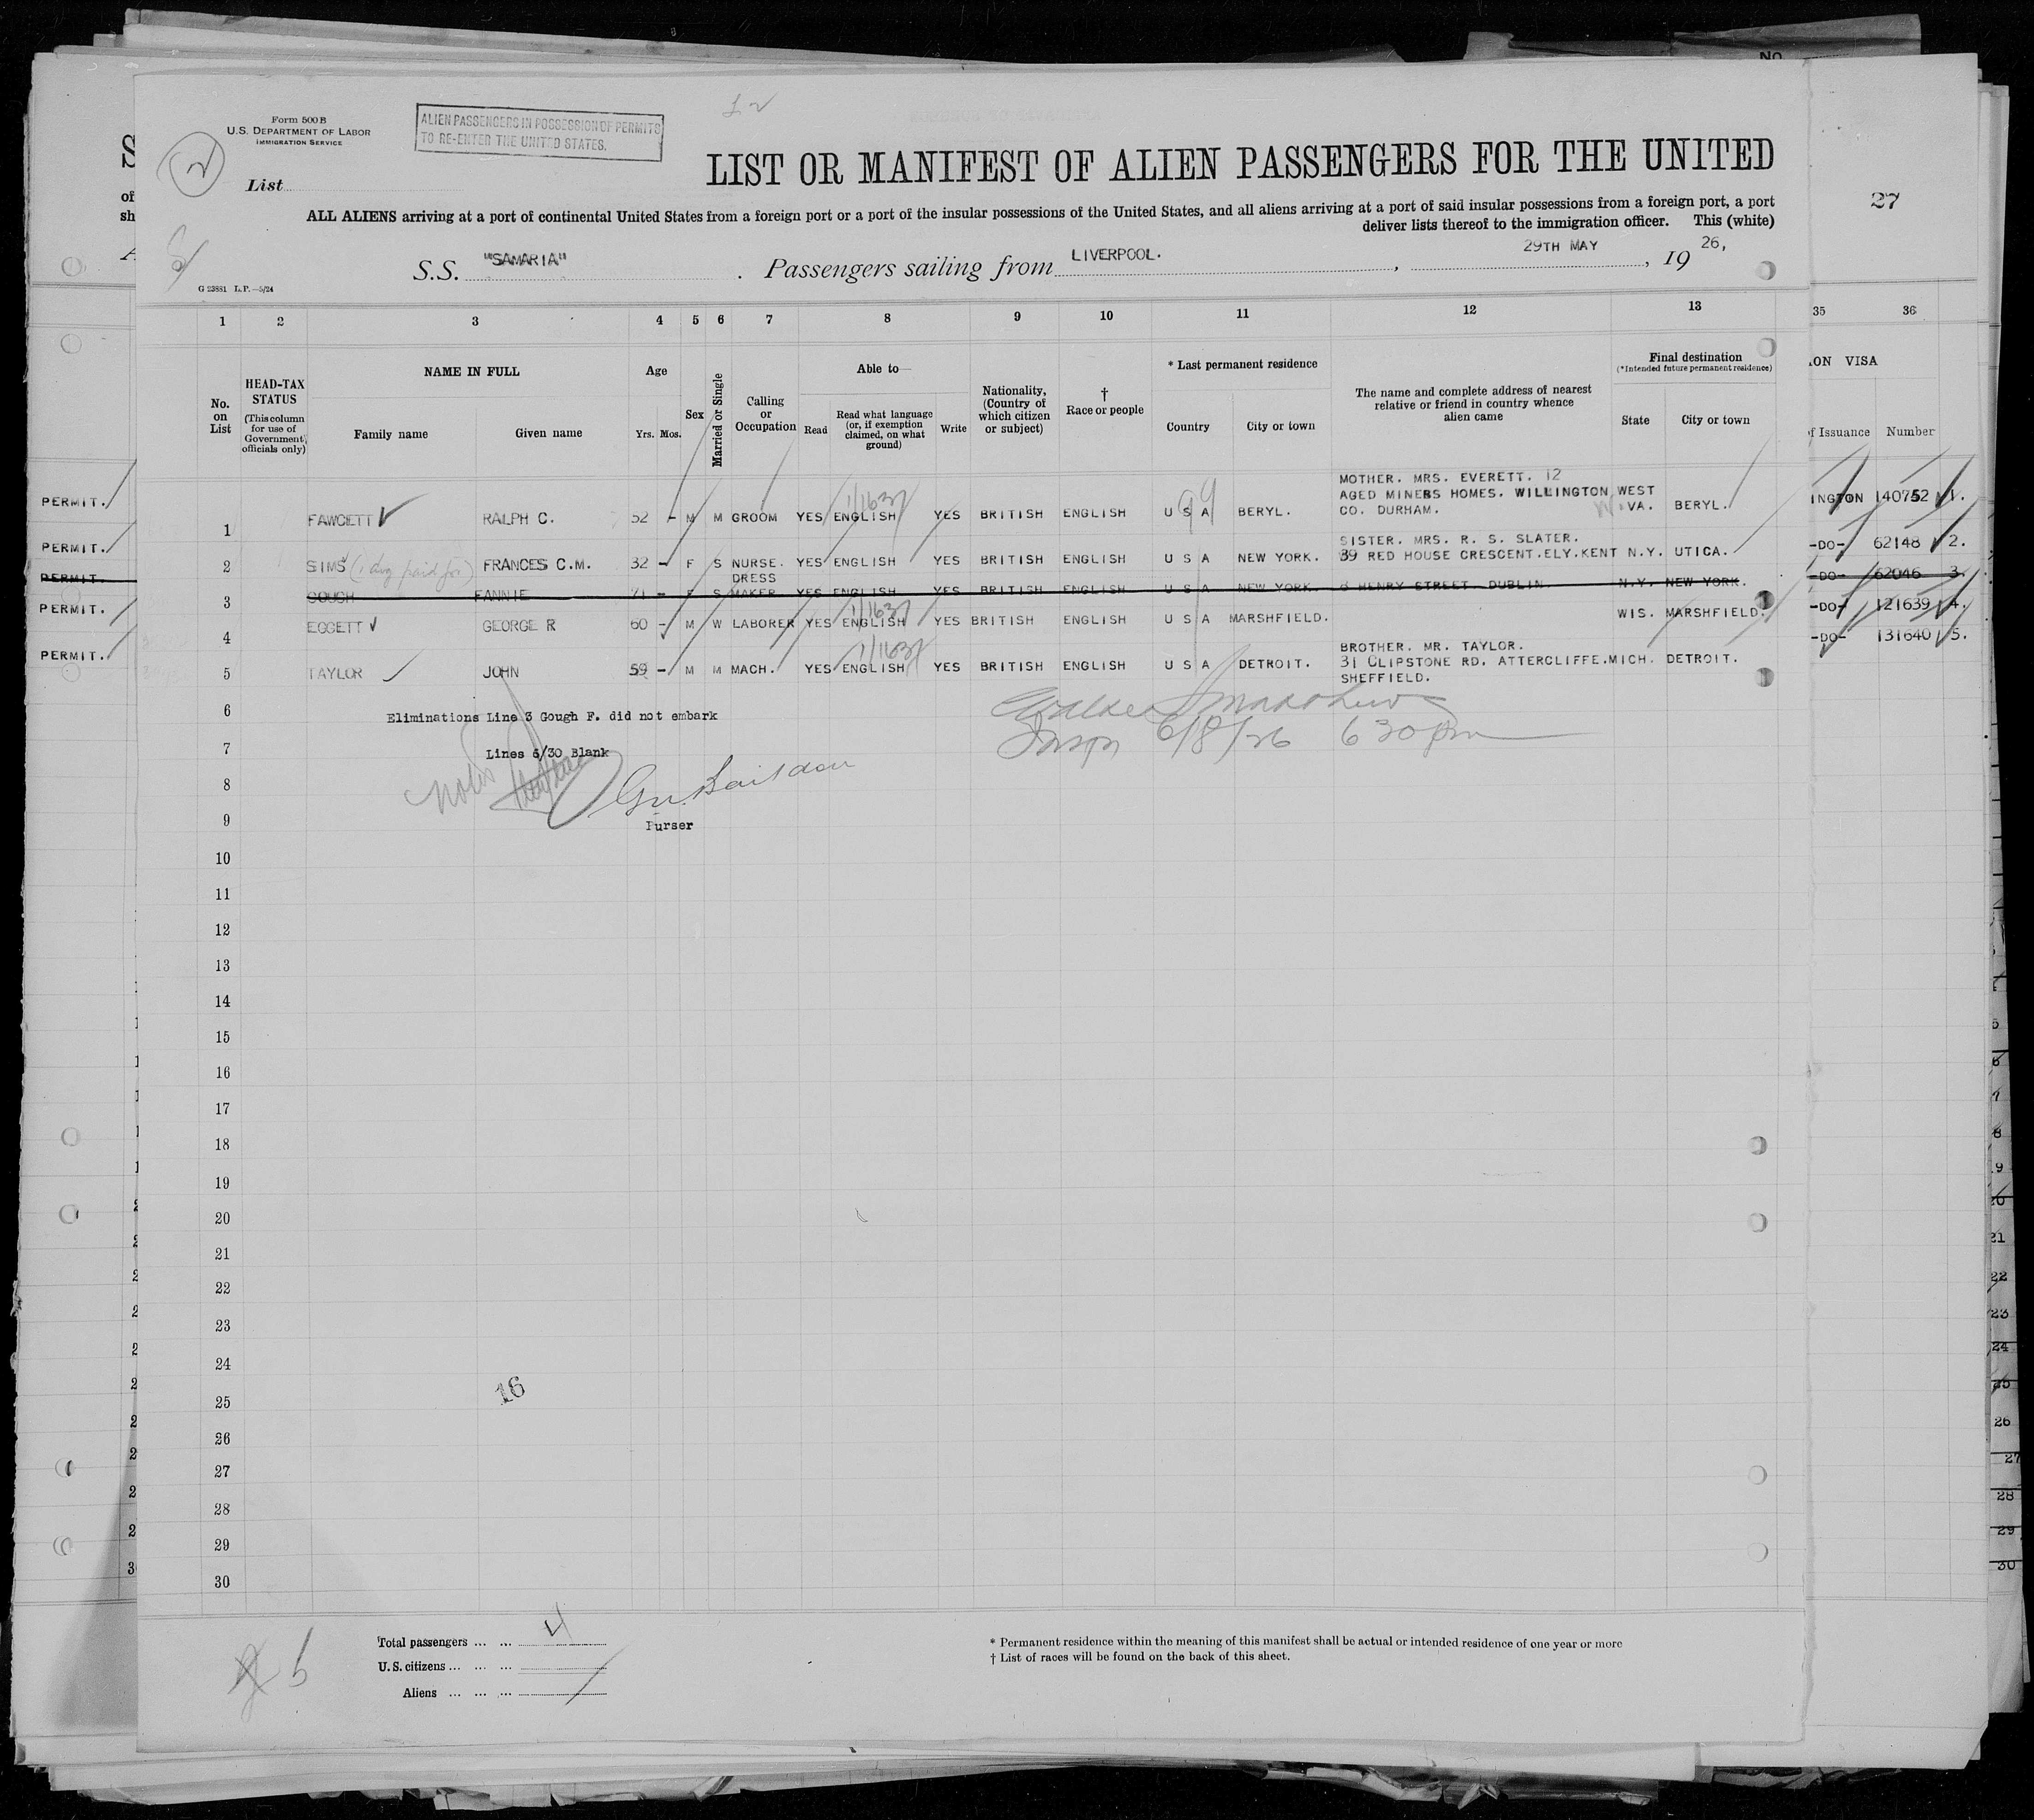 No
27
2
Form 500 B
U.S. DEPARTMENT OF LABOR
IMMIGRATION SERVICE
ALIEN PASSENGERS IN POSSESSION OF PERMITS
TO RE-ENTER THE UNITED STATES.
List
LIST OR MANIFEST OF ALIEN PASSENGERS FOR THE UNITED
ALL ALIENS arriving at a port of continental United States from a foreign port or a port of the insular possessions of the United States, and all aliens arriving at a port of said insular possessions from a foreign port, a port
deliver lists thereof to the immigration officer. This (white)
S.S. "SAMARIA". Passengers sailing from LIVERPOOL. , 29TH MAY , 19 26,
G 23881 L.P.—5/24
1 2 3 4 5 6 7 8 9 10 11 12 13 35 36
No. on List
HEAD-TAX STATUS
(This column for use of Government officials only)
NAME IN FULL
Family name Given name
Age
Yrs. Mos.
Sex
Married or Single
Calling or Occupation
Able to—
Read
Read what language (or, if exemption claimed, on what ground)
Write
Nationality, (Country of which citizen or subject)
† Race or people
* Last permanent residence
Country City or town
The name and complete address of nearest relative or friend in country whence alien came
Final destination
(*Intended future permanent residence)
State City or town
ON VISA
of Issuance Number
MOTHER. MRS. EVERETT. 12
AGED MINERS HOMES. WILLINGTON WEST
PERMIT. 1 FAWCETT RALPH C. 52 - M M GROOM YES ENGLISH YES BRITISH ENGLISH U S A BERYL. CO. DURHAM. VA. BERYL. INGTON 140752 1.
1/1637
SISTER. MRS. R. S. SLATER.
PERMIT. 2 SIMS (1 dog paid for) FRANCES C.M. 32 - F S NURSE. YES ENGLISH YES BRITISH ENGLISH U S A NEW YORK. 39 RED HOUSE CRESCENT.ELY.KENT N.Y. UTICA. -DO- 62148 2.
DRESS
PERMIT. 3 GOUGH FANNIE 71 - F S MAKER YES ENGLISH YES BRITISH ENGLISH U S A NEW YORK. 8 HENRY STREET DUBLIN N.Y. NEW YORK. -DO- 62046 3.
1/1637
PERMIT. 4 EGGETT GEORGE R 60 - M W LABORER YES ENGLISH YES BRITISH ENGLISH U S A MARSHFIELD. WIS. MARSHFIELD. -DO- 121639 4.
1/1637
BROTHER. MR. TAYLOR.
PERMIT. 5 TAYLOR JOHN 59 - M M MACH. YES ENGLISH YES BRITISH ENGLISH U S A DETROIT. 31 CLIPSTONE RD. ATTERCLIFFE. MICH. DETROIT. -DO- 131640 5.
SHEFFIELD.
6
Eliminations Line 3 Gough F. did not embark
Insp 6/8/26 6 30 pm
7
Lines 6/30 Blank
8
9
Purser
10
11
12
13
14
15
16
17
18
19
20
21
22
23
24
16
25
26
27
28
29
30
Total passengers ... ... 4
U.S. citizens ... ... ...
Aliens ... ... ...
* Permanent residence within the meaning of this manifest shall be actual or intended residence of one year or more
† List of races will be found on the back of this sheet.